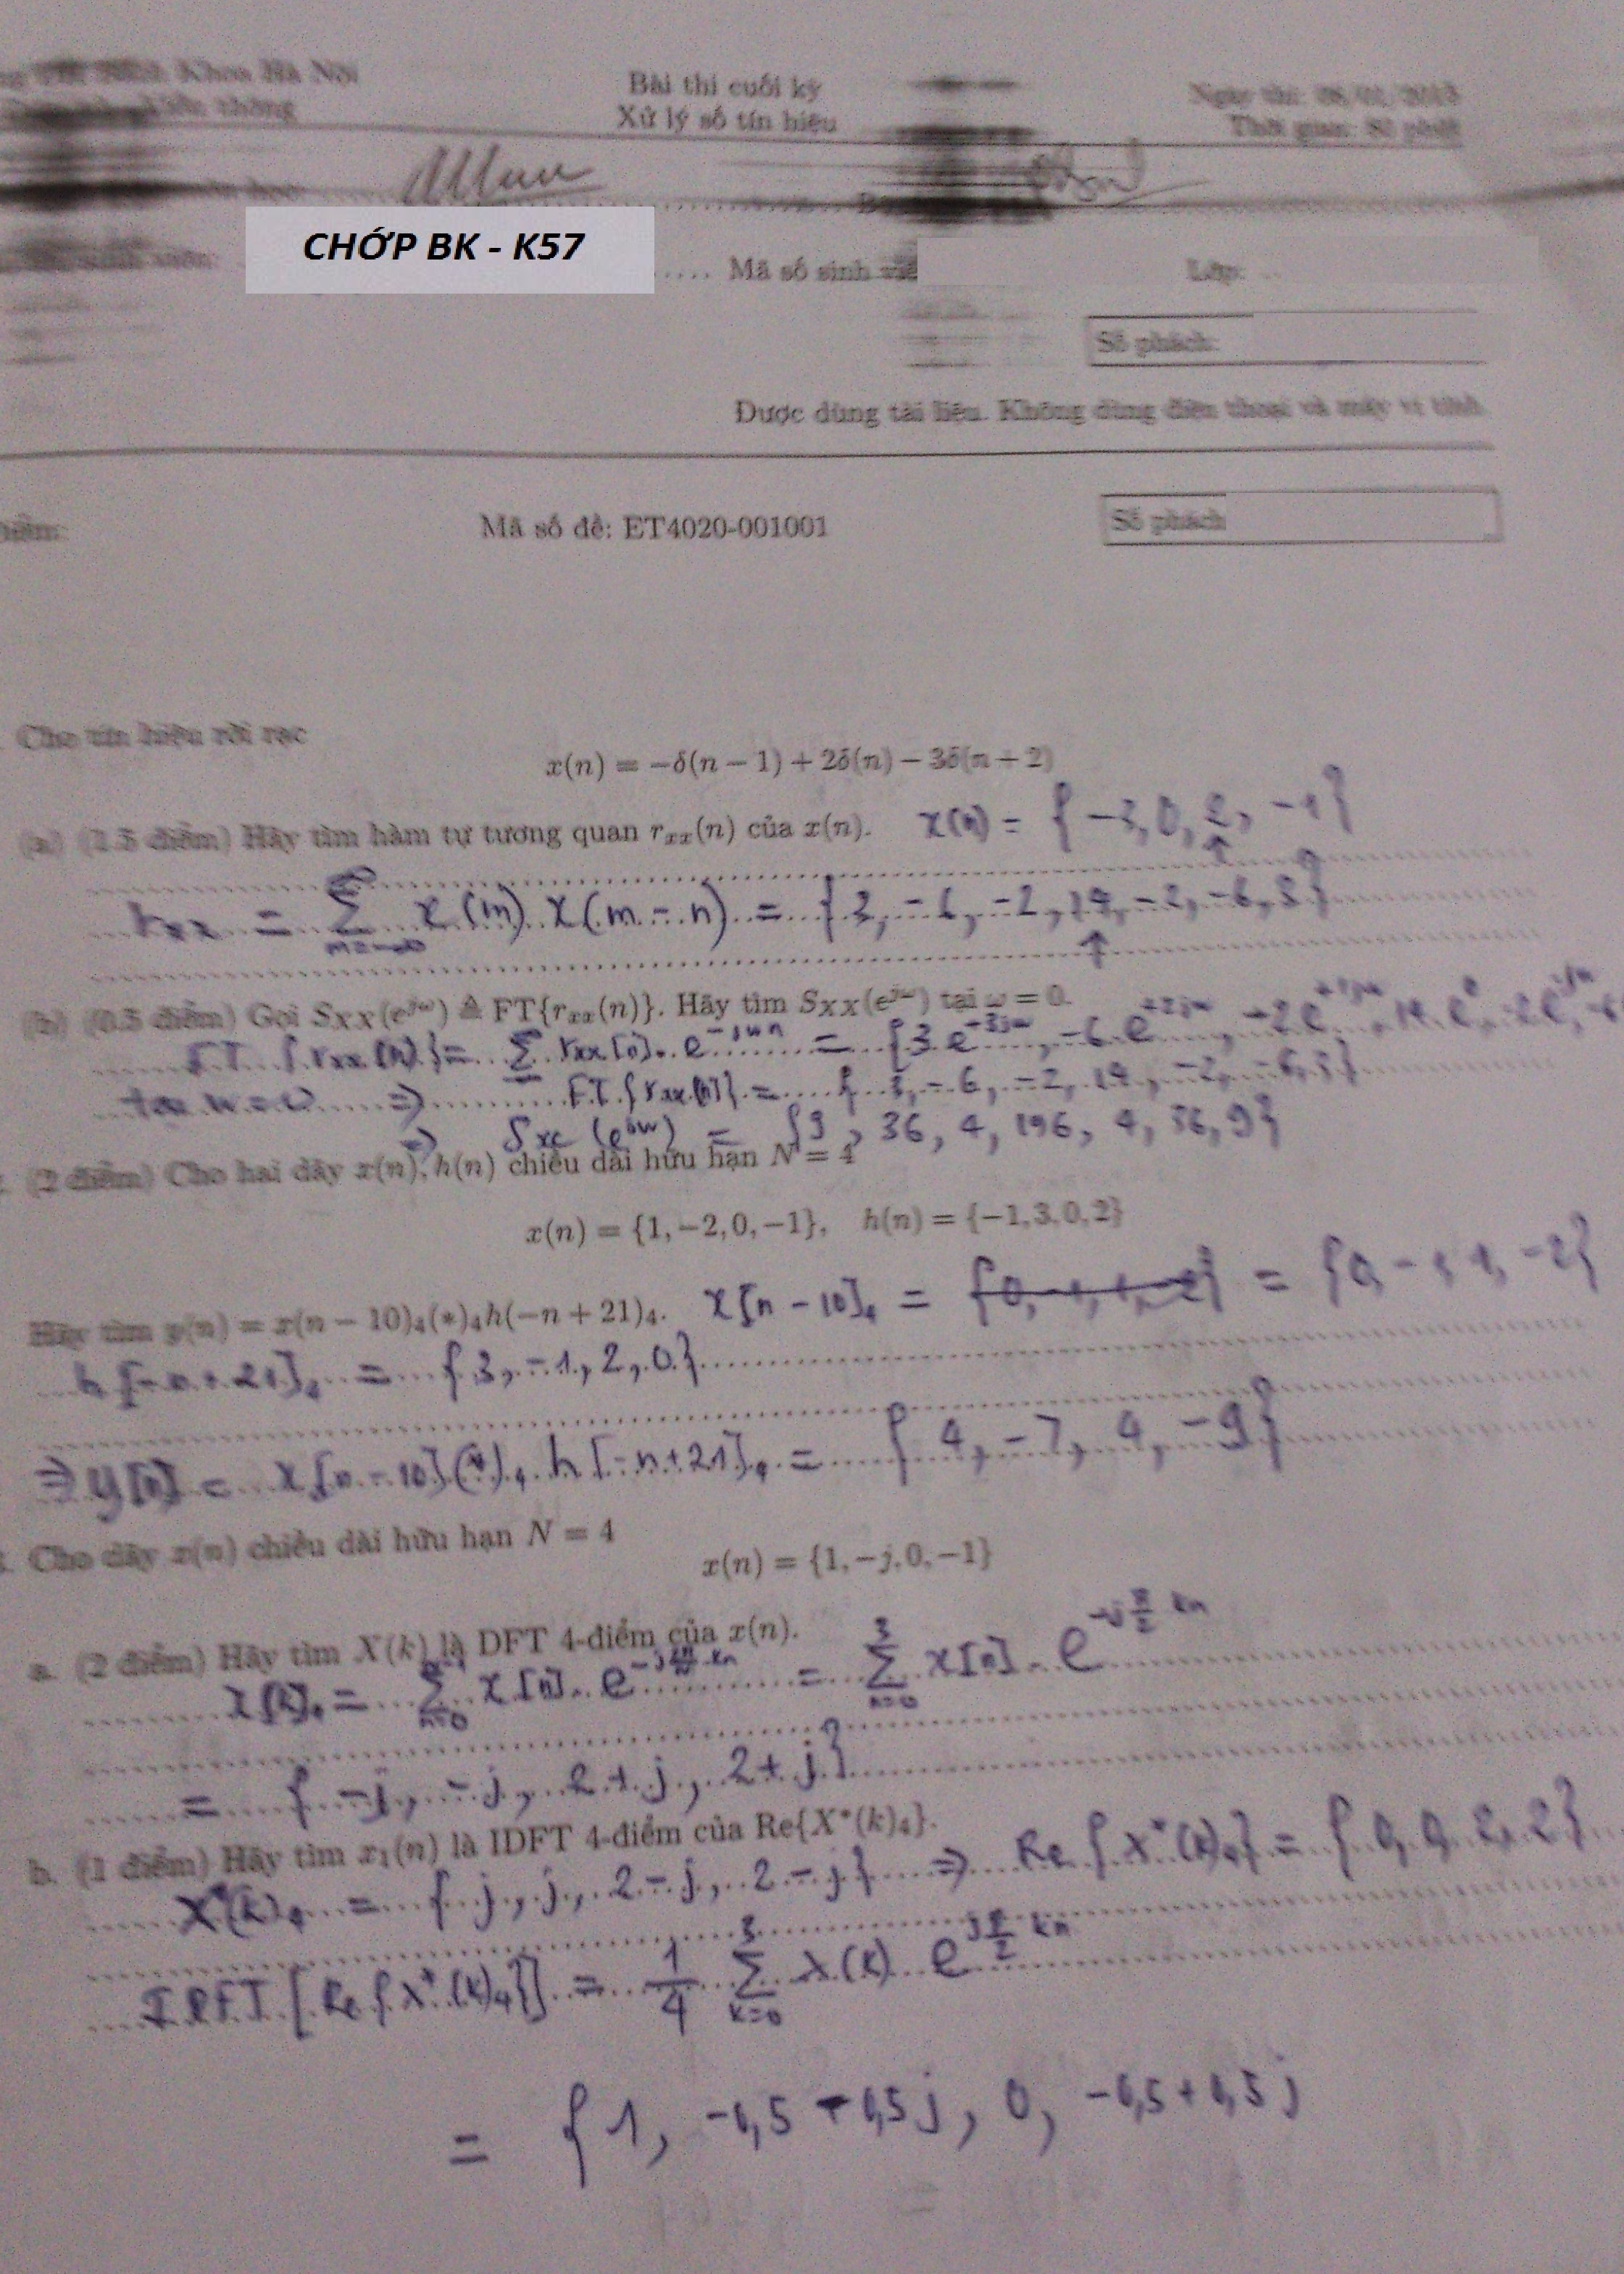 Khoa Hà Nội
Bài thi cuối kỳ
Xử lý số tín hiệu
Thời gian: phút
CHỚP BK - K57
Mã số sinh
Lớp:
Số phách:
Được dùng tài liệu. Không dùng điện thoại và máy vi tính
Mã số đề: ET4020-001001
Số phách
Cho tín hiệu rời rạc
x(n) = −δ(n − 1) + 2δ(n) − 3δ(n + 2)
(a) (1.5 điểm) Hãy tìm hàm tự tương quan rxx(n) của x(n). x(n) = {-3, 0, 2, -1}
↑
rxx = ∑ x(m) x(m - n) = {3, -6, -2, 14, -2, -6, 3}
m=-∞
↑
(b) (0.5 điểm) Gọi SXX(e^jω) ≜ FT{rxx(n)}. Hãy tìm SXX(e^jω) tại ω = 0.
FT {rxx(n)} = ∑ rxx[n]. e^-jwn = {3 e^-3jw, -6 e^+2jw, -2e
w = 0 ⇒ FT {rxx[n]} = { 3, -6, -2, 14, -2, -6, 3}
⇒ {9, 36, 4, 196, 4, 36, 9}
(2 điểm) Cho hai dãy x(n), h(n) chiều dài hữu hạn N = 4
x(n) = {1, −2, 0, −1}, h(n) = {−1, 3, 0, 2}
Hãy tìm y(n) = x(n − 10)4(∗)4h(−n + 21)4. x[n - 10]4 = {0, -1, 1, -2} = {0, -1, 1, -2}
h[-n + 21]4 = {3, -1, 2, 0}
⇒ y[n] = x[n - 10](*)4 h[-n+21]4 = { 4, -7, 4, -9}
Cho dãy x(n) chiều dài hữu hạn N = 4
x(n) = {1, −j, 0, −1}
a. (2 điểm) Hãy tìm X(k) là DFT 4-điểm của x(n).
X[k]4 = ∑ x[n]. e^-j2π/N kn = ∑ x[n]. e^-jπ/2 kn
n=0 3 n=0
= { -j, -j, 2 + j, 2 + j}
b. (1 điểm) Hãy tìm x1(n) là IDFT 4-điểm của Re{X*(k)4}.
X*(k)4 = { j, j, 2 - j, 2 - j} ⇒ Re {X*(k)4} = {0, 0, 2, 2}
IDFT [Re {X*(k)4}] = 1/4 ∑ X(k) e^jπ/2 kn
3 k=0
= {1, -0,5 - 0,5j, 0, -0,5 + 0,5j